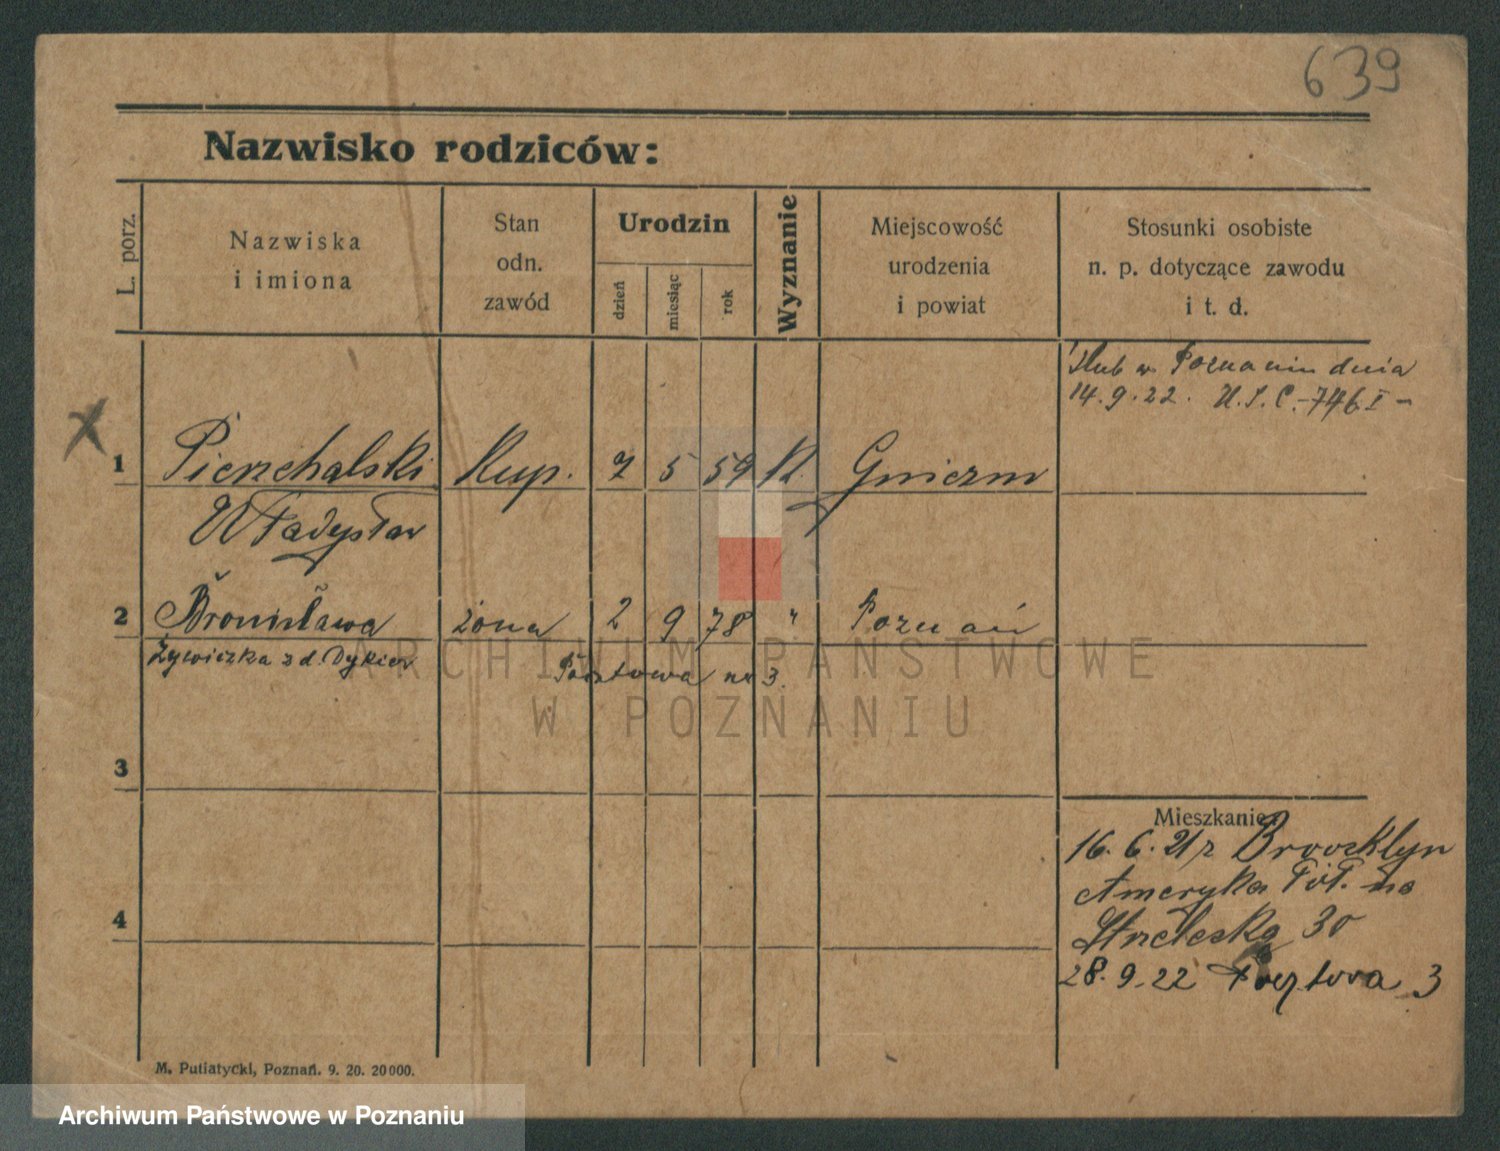 639
Nazwisko rodziców:
L. porz.
Nazwiska
i imiona
Stan
odn.
zawód
Urodzin
dzień
miesiąc
rok
Wyznanie
Miejscowość
urodzenia
i powiat
Stosunki osobiste
n. p. dotyczące zawodu
i t. d.
Ślub w Poznaniu dnia
14.9.22. U.S.C.-746 I -
1 Pierzchalski Kup. 7 5 59 kt. Gniezno
Władysław
2 Bronisława żona 2 9 78 " Poznań
Żywiczka z d. Dykier
Pocztowa nr 3.
3
Mieszkanie
16.6.21 r Broozklyn
Ameryka Pół. na
4
Strzelecką 30
28.9.22 Pocztowa 3
M. Putiatycki, Poznań. 9. 20. 20000.
ARCHIWUM PAŃSTWOWE
W POZNANIU
Archiwum Państwowe w Poznaniu